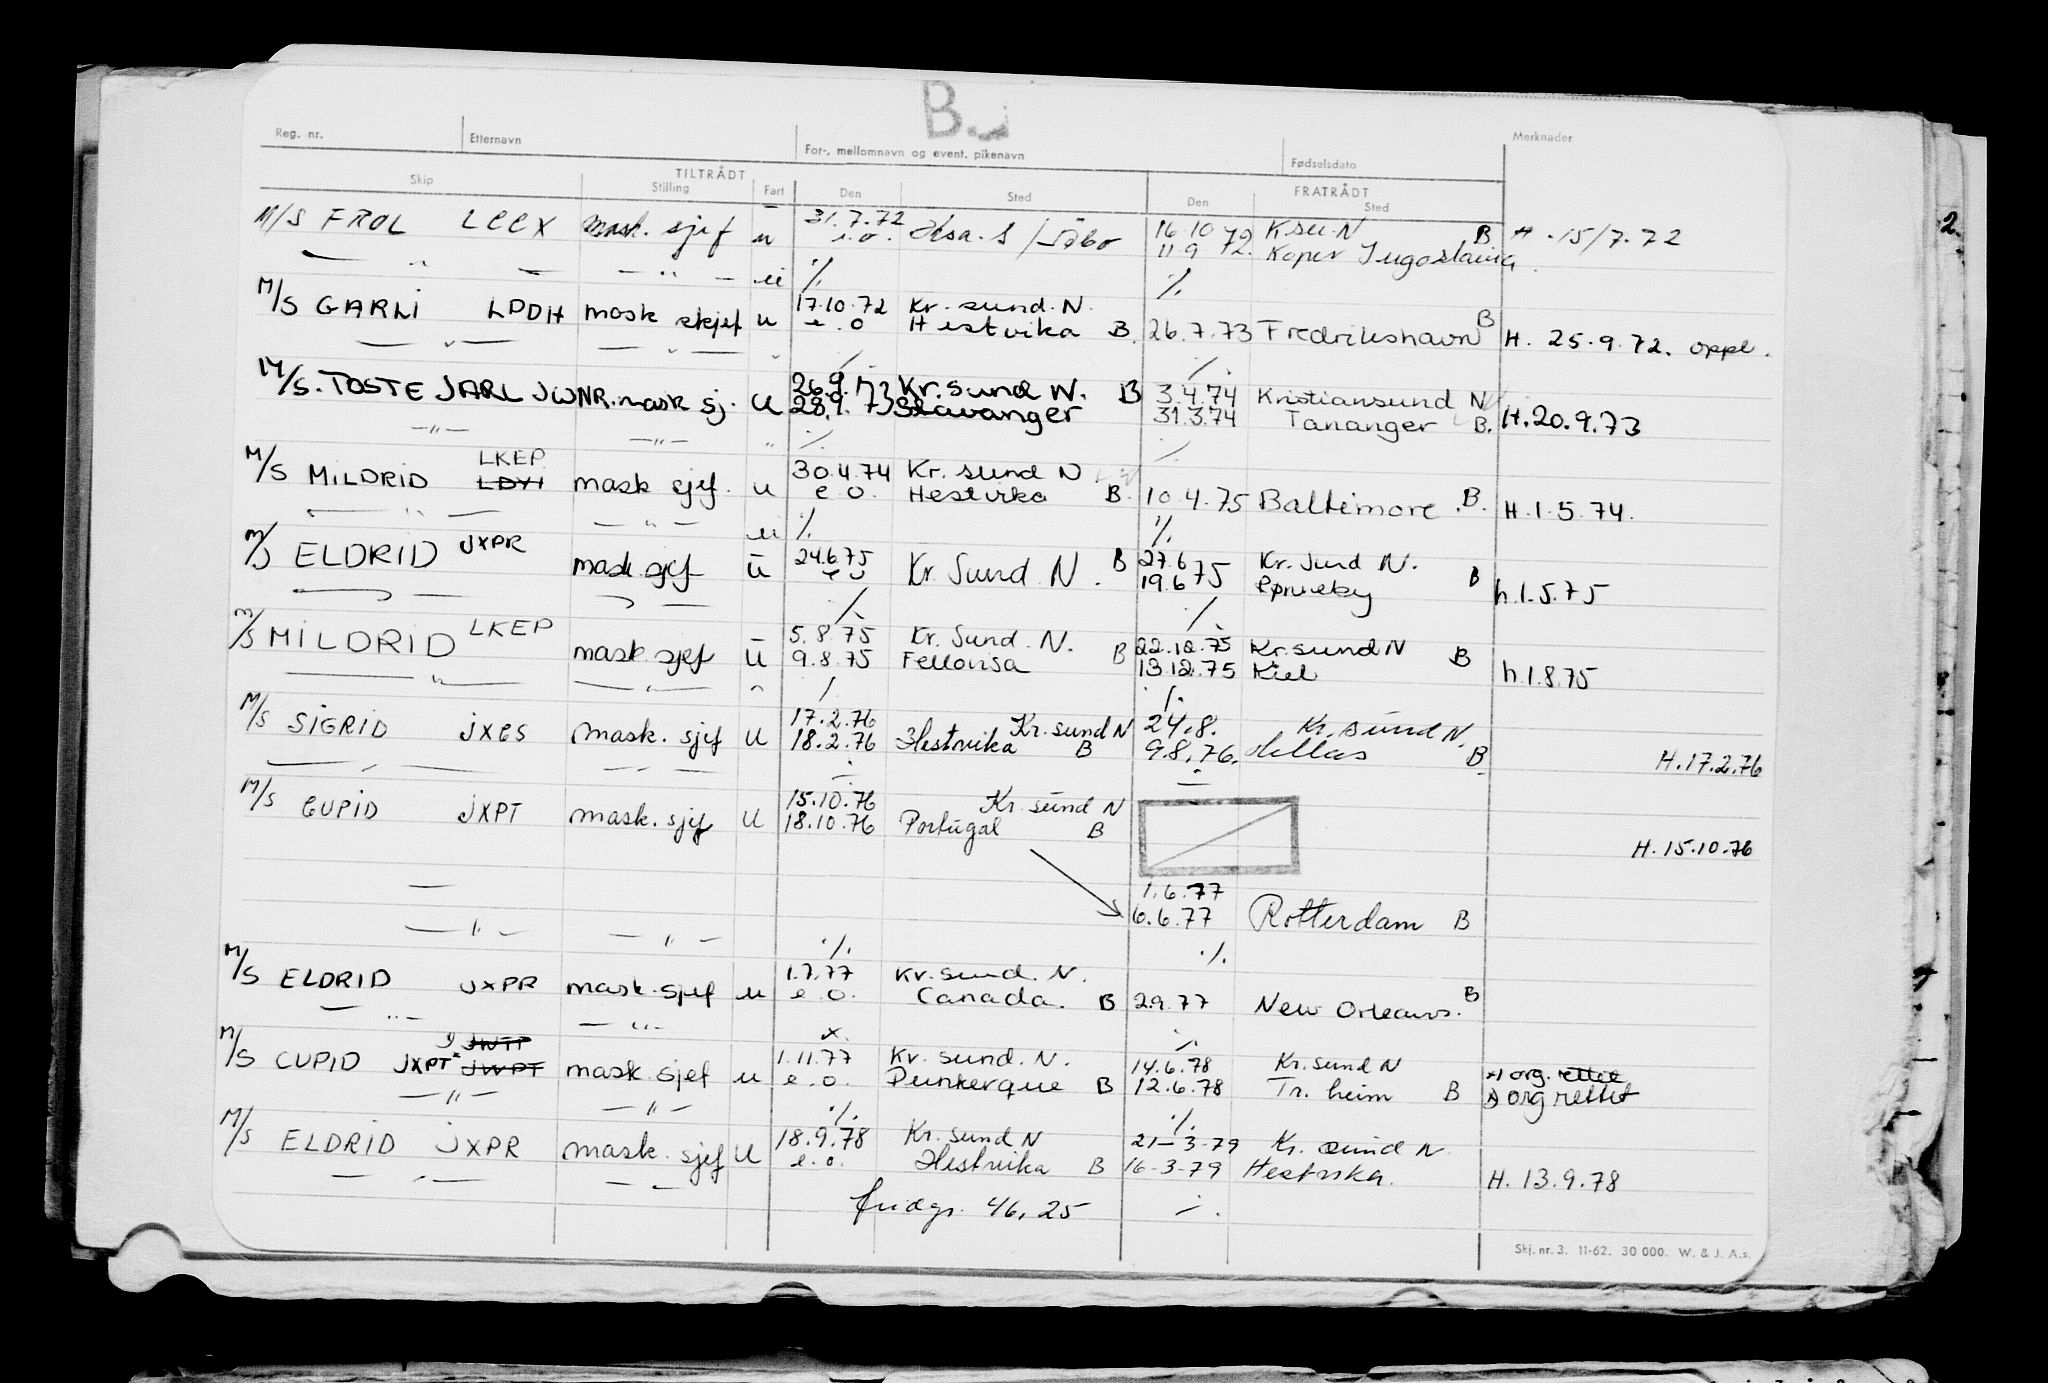 B.
Reg. nr. Etternavn For-, mellomnavn og event. pikenavn Fødselsdato Merknader
TILTRÅDT FRATRÅDT
Skip Stilling Fart Den Sted Den Sted
M/S FROL LCCX mask. sjef u 31.7.72 16.10.72 Ksu N B H. 15/7.72
e.o. 11.9.72. Koper Jugoslavia
— " — — " — " % %
M/S GARLI LPDH mask skjef u 17.10.72 Kr. sund. N. B
e.o Hestvika B. 26.7.73 Fredrikshavn H. 25.9.72. oppl.
— " — — " — " % %
M/S. TOSTE JARL JWNR. mask sj. U 26.9.73 Kr. sund N. B 3.4.74 Kristiansund N
28.9.73 Stavanger 31.3.74 Tananger B. H. 20.9.73
— " — — " — " % %
M/S MILDRID LKEP mask sjef. u 30.4.74 Kr. sund N
LDYI e.o. Hestvika B. 10.4.75 Baltimore. B. H. 1.5.74.
— " — — " — " % %
M/S ELDRID JXPR mask sjef u 24.6.75 Kr Sund N. B 27.6 Kr. Sund N.
19.6.75 B h. 1.5.75
% %
M/S MILDRID LKEP mask. sjef u 5.8.75 Kr. Sund. N. 22.12.75 Kr. sund N B
9.8.75 B 13.12.75 Kiel h. 1.8.75
— " — — " — " % %
M/S SIGRID JXGS mask. sjef u 17.2.76 Kr. sund N 24.8. Kr. sund N.
18.2.76 Hestvika B 9.8.76. Hellas B H. 17.2.76
— " — — " — % %
M/S CUPID JXPT mask. sjef u 15.10.76 Kr. sund N
18.10.76 Portugal B H. 15.10.76
1.6.77
6.6.77 Rotterdam B
— " — — " — % %
M/S ELDRID JXPR mask. sjef u 1.7.77 Kr. sund. N.
e.o. Canada. B 2.9.77 New Orleans. B
— " — — " — x %
M/S CUPID JXPT* JWTP JWPT mask sjef u 1.11.77 Kr. sund. N. 14.6.78 Kr. sund N x) org. rettet
e.o. Dunkerque B 12.6.78 Tr. heim B org rettet
— " — — " — % %
M/S ELDRID JXPR mask. sjef U 18.9.78 Kr. sund N 21-3-79 Kr. sund N.
e.o. Hestvika B 16-3-79 Hestvika. H. 13.9.78
— " — — " —
fridgr. 46,25 %
Skj. nr. 3. 11-62. 30 000. W. & J. A.s.
2.